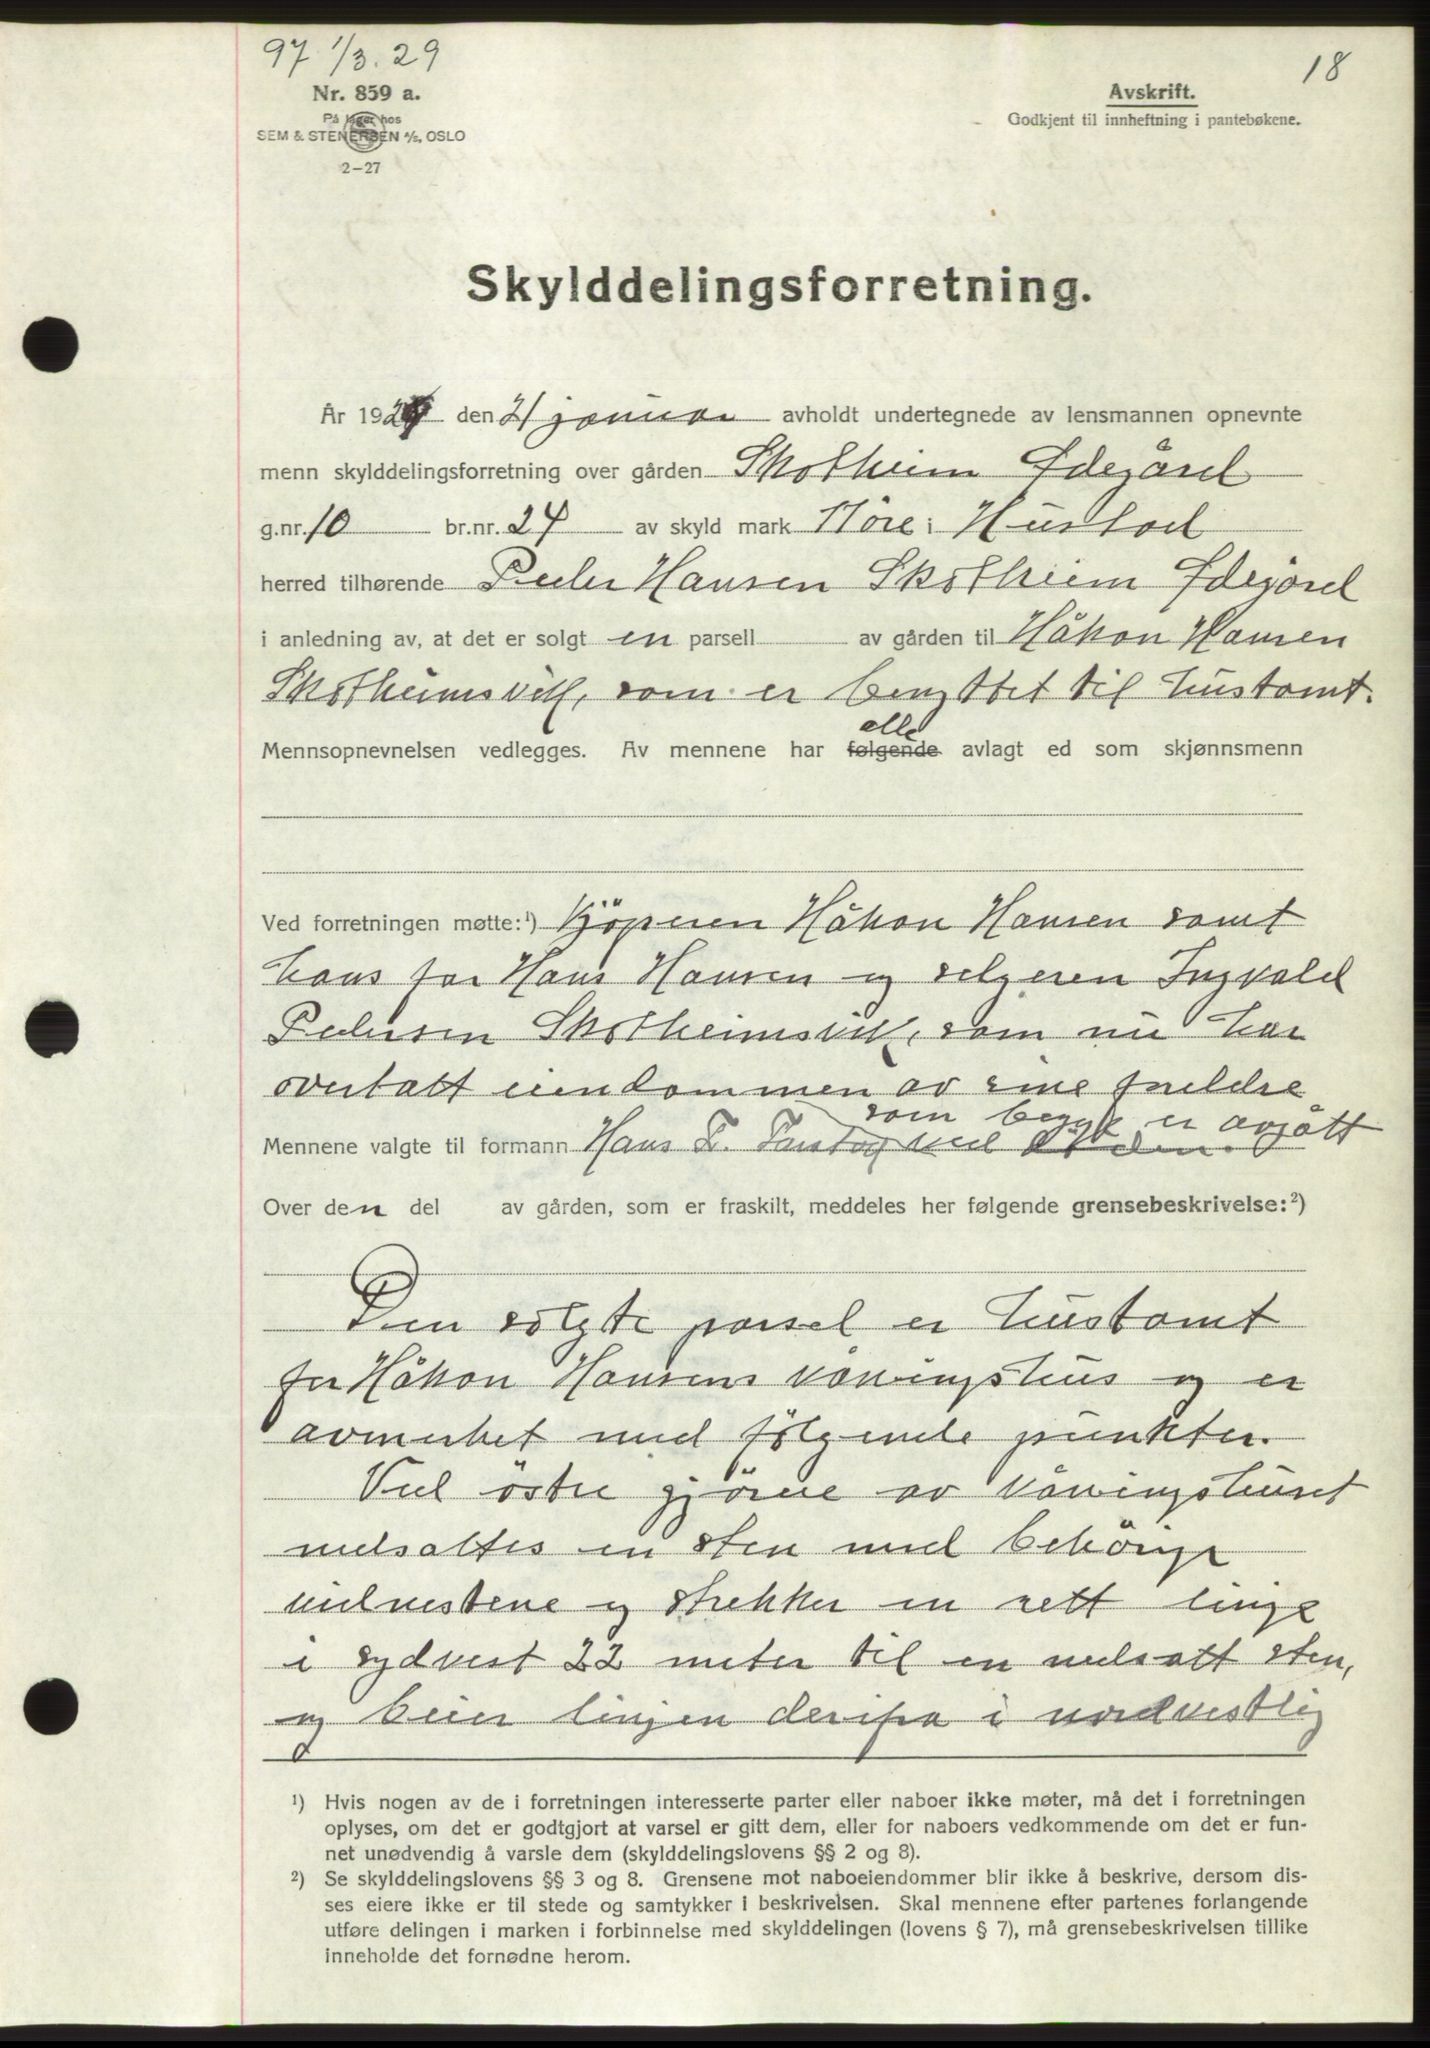 97 1/3. 29
18
Nr. 859 a.
På lager hos
SEM & STENERSEN A/S, OSLO
2-27
Avskrift.
Godkjent til innheftning i pantebøkene.
Skylddelingsforretning.
År 1929 den 21 januar avholdt undertegnede av lensmannen opnevnte
menn skylddelingsforretning over gården Skotheim Ødegård
g.nr. 10 br.nr. 24 av skyld mark 1 öre i Hustad
herred tilhørende Peder Hansen Skotheim Ødegård
i anledning av, at det er solgt en parsell av gården til Håkon Hansen
Skotheimsvik, som er benyttet til hustomt.
alle
Mennsopnevnelsen vedlegges. Av mennene har følgende avlagt ed som skjønnsmenn
Ved forretningen møtte:¹) Kjöperen Håkon Hansen samt
hans far Hans Hansen og selgeren Ingvald
Pedersen Skotheimsvik, som nu har
overtatt eiendommen av sine foreldre
som begge er avgått
Mennene valgte til formann Hans F. Tarstog ved döden.
Over den del av gården, som er fraskilt, meddeles her følgende grensebeskrivelse:²)
Den solgte parsel er hustomt
for Håkon Hansens våningshus og er
avmerket med følgende punkter.
Ved östre hjörne av våningshuset
nedsattes en sten med behörige
vidnestene og strekker en rett linje
i sydvest 22 meter til en nedsatt sten,
og beier linjen derifra i nordvestlig
¹) Hvis nogen av de i forretningen interesserte parter eller naboer ikke møter, må det i forretningen
oplyses, om det er godtgjort at varsel er gitt dem, eller for naboers vedkommende om det er fun-
net unødvendig å varsle dem (skylddelingslovens §§ 2 og 8).
²) Se skylddelingslovens §§ 3 og 8. Grensene mot naboeiendommer blir ikke å beskrive, dersom dis-
ses eiere ikke er til stede og samtykker i beskrivelsen. Skal mennene efter partenes forlangende
utføre delingen i marken i forbinnelse med skylddelingen (lovens § 7), må grensebeskrivelsen tillike
inneholde det fornødne herom.